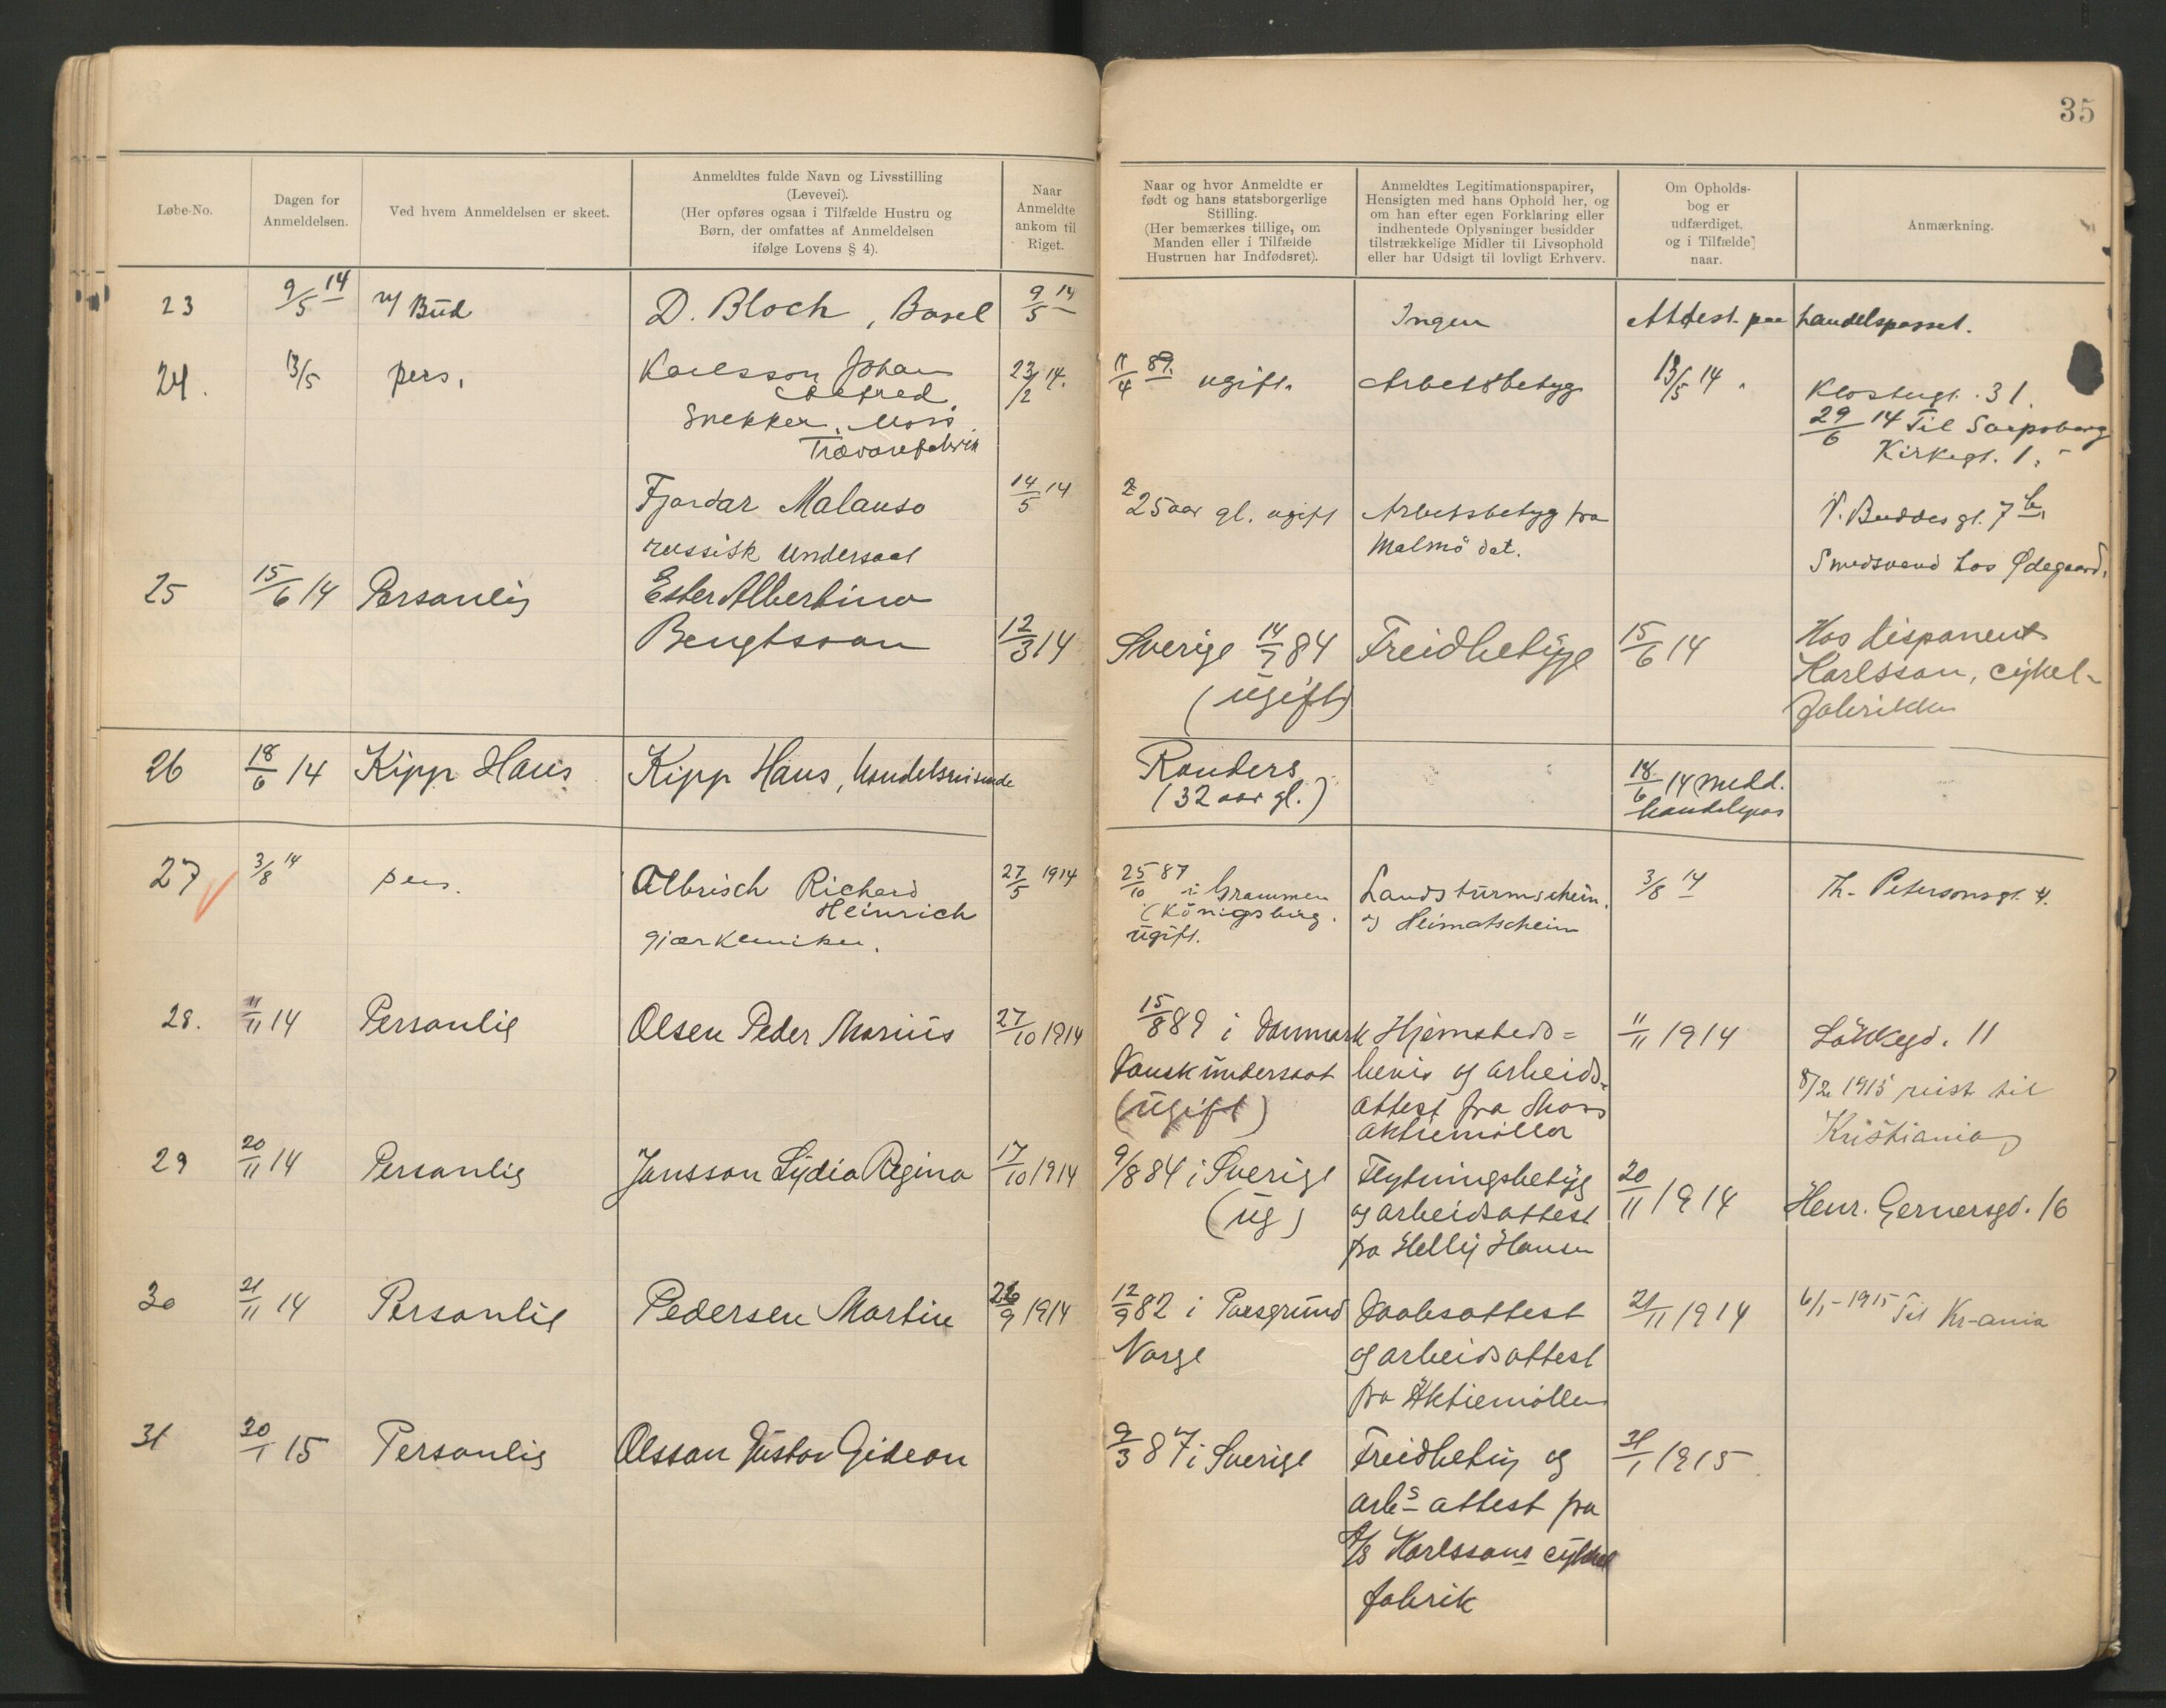 35
Løbe-No.
Dagen for
Anmeldelsen.
Ved hvem Anmeldelsen er skeet.
Anmeldtes fulde Navn og Livsstilling
(Levevei).
(Her opføres ogsaa i Tilfælde Hustru og
Børn, der omfattes af Anmeldelsen
ifølge Lovens § 4).
Naar
Anmeldte
ankom til
Riget.
Naar og hvor Anmeldte er
født og hans statsborgerlige
Stilling.
(Her bemærkes tillige, om
Manden eller i Tilfælde
Hustruen har Indfødsret).
Anmeldtes Legitimationspapirer,
Hensigten med hans Ophold her, og
om han efter egen Forklaring eller
indhentede Oplysninger besidder
tilstrækkelige Midler til Livsophold
eller har Udsigt til lovligt Erhverv.
Om Opholds-
bog er
udfærdiget.
og i Tilfælde
naar.
Anmærkning.
23 9/5 14 v/ Bud D. Bloch, Basel 9/5 14 Ingen Attest paa handelspasset.
24. 13/5 pers. Karlsson Johan 23/2 14. 11/4 89. ugift. Arbetsbetyg 13/5 14.
Snekker, Moss
Trævarefabrik
Klostergt. 31.
29/6 14 Til Sarpsborg
Kirkegt. 1.
Fjordar Malanso 14/5 14 25 aar gl. ugift Arbetsbetyg fra
Malmö dat.
russisk Undersaat
V. Buddes gt. 7 b.
Smedsvend hos Ødegaard.
25 15/6 14 Personlig Ester Albertina
Bengtsson 12/3 14 Sverige 14/7 84 Freidbetyge 15/6 14
(ugift)
Hos disponent
Karlsson, cykel-
fabrikken
26 18/6 14 Kipp Hans Kipp Hans, handelsreisende Randers
(32 aar gl.)
18/6 14 medd.
handelspas
27 3/8 14 pers. Albrisch Richard
Heinrich
gjærkemiker.
27/5 1914 25/10 87
i Grammen
(Königsberg.
ugift.
Landsturmschein.
og Heimatschein
3/8 14 Th. Petersonsgt. 4.
28. 11/11 14 Personlig Olsen Peder Marius 27/10 1914 15/8 89 i Danmark
Dansk undersaat
(ugift)
Hjemsteds=
bevis og arbeids-
attest fra Moss
aktiemøller
11/11 1914 Løkkegd. 11
8/2 1915 reist til
Kristiania
29 20/11 14 Personlig Jansson Lydia Regina 17/10 1914 9/8 84 i Sverige
(ug)
Flytningsbetyg
og arbeidsattest
fra Helly Hansen
20/11 1914 Henr. Gernersgd. 16
30 21/11 14 Personlig Pedersen Martin 1914 12/9 82 i Porsgrund
Norge
Daabsattest
og arbeidsattest
fra Aktiemøllen
21/11 1914 6/1-1915 Til Kr-ania
31 30/1 15 Personlig Olsson Gustav Gideon 9/3 87 i Sverige
Freidbetyg og
arb.s attest fra
A/S Karlssons cykkel
fabrik
31/1 1915